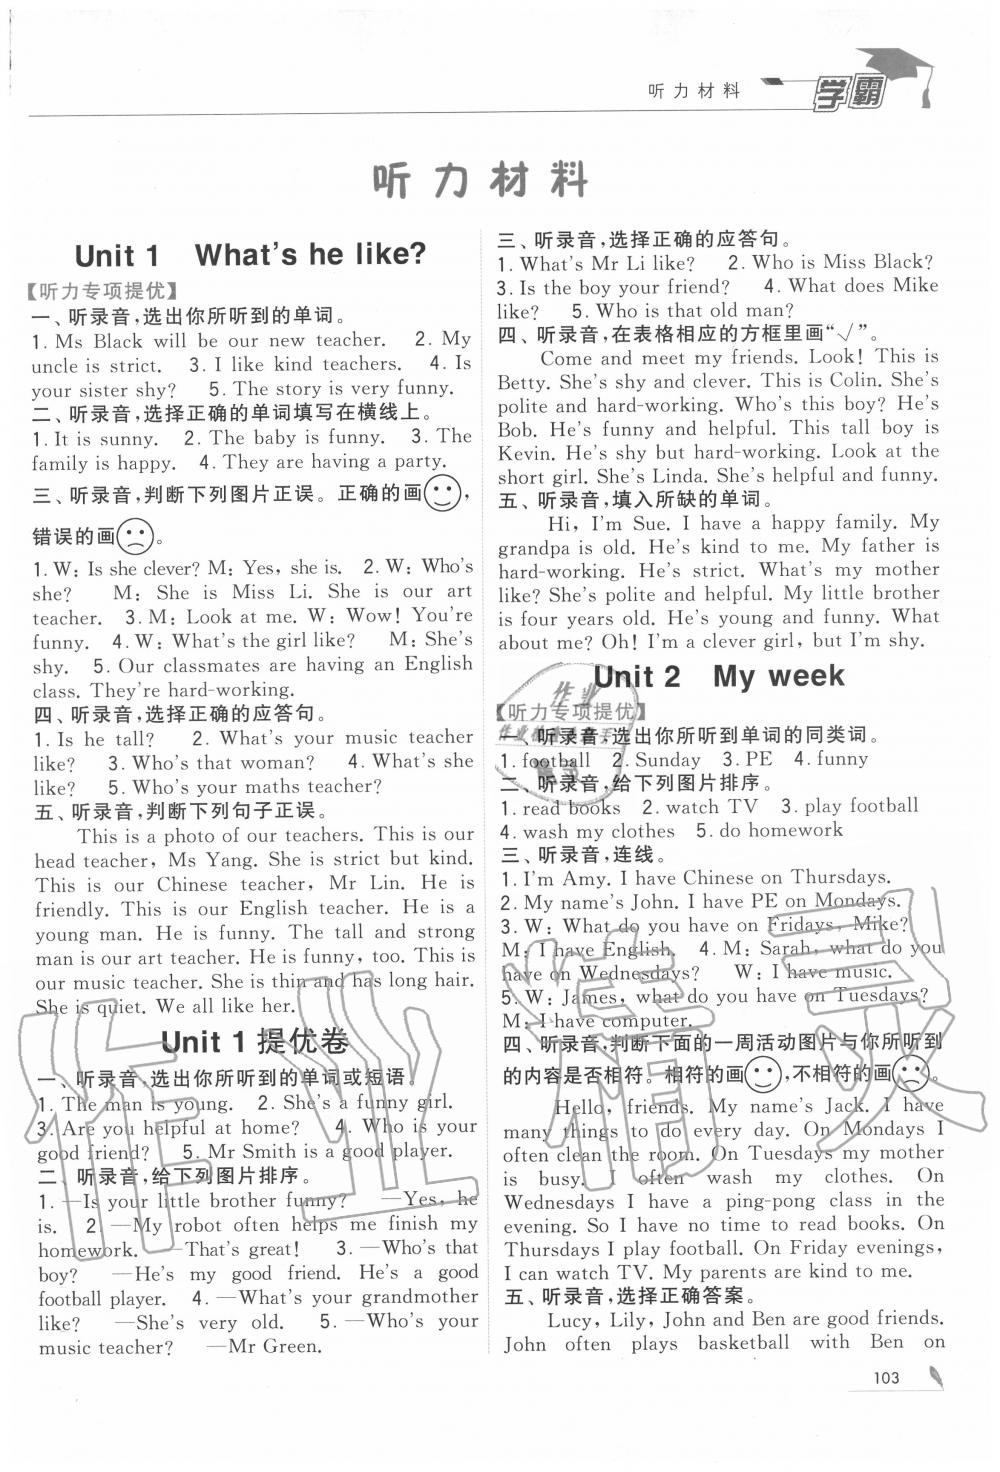 听力材料
学霸
听力材料
Unit 1 What's he like?
【听力专项提优】
一、听录音,选出你所听到的单词。
1. Ms Black will be our new teacher. 2. My
uncle is strict. 3. I like kind teachers. 4. Is
your sister shy? 5. The story is very funny.
二、听录音,选择正确的单词填写在横线上。
1. It is sunny. 2. The baby is funny. 3. The
family is happy. 4. They are having a party.
三、听录音,判断下列图片正误。正确的画,
错误的画。
1. W: Is she clever? M: Yes, she is. 2. W: Who's
she? M: She is Miss Li. She is our art
teacher. 3. M: Look at me. W: Wow! You're
funny. 4. W: What's the girl like? M: She's
shy. 5. Our classmates are having an English
class. They're hard-working.
四、听录音,选择正确的应答句。
1. Is he tall? 2. What's your music teacher
like? 3. Who's that woman? 4. What's she
like? 5. Who's your maths teacher?
五、听录音,判断下列句子正误。
This is a photo of our teachers. This is our
head teacher, Ms Yang. She is strict but kind.
This is our Chinese teacher, Mr Lin. He is
friendly. This is our English teacher. He is a
young man. He is funny. The tall and strong
man is our art teacher. He is funny, too. This is
our music teacher. She is thin and has long hair.
She is quiet. We all like her.
Unit 1 提优卷
一、听录音,选出你所听到的单词或短语。
1. The man is young. 2. She's a funny girl.
3. Are you helpful at home? 4. Who is your
good friend? 5. Mr Smith is a good player.
二、听录音,给下列图片排序。
1. —Is your little brother funny? —Yes, he
is. 2. —My robot often helps me finish my
homework. —That's great! 3. —Who's that
boy? —He's my good friend. He's a good
football player. 4. —What's your grandmother
like? —She's very old. 5. —Who's your
music teacher? —Mr Green.
三、听录音,选择正确的应答句。
1. What's Mr Li like? 2. Who is Miss Black?
3. Is the boy your friend? 4. What does Mike
like? 5. Who is that old man?
四、听录音,在表格相应的方框里画“√”。
Come and meet my friends. Look! This is
Betty. She's shy and clever. This is Colin. She's
polite and hard-working. Who's this boy? He's
Bob. He's funny and helpful. This tall boy is
Kevin. He's shy but hard-working. Look at the
short girl. She's Linda. She's helpful and funny.
五、听录音,填入所缺的单词。
Hi, I'm Sue. I have a happy family. My
grandpa is old. He's kind to me. My father is
hard-working. He's strict. What's my mother
like? She's polite and helpful. My little brother
is four years old. He's young and funny. What
about me? Oh! I'm a clever girl, but I'm shy.
Unit 2 My week
【听力专项提优】
一、听录音,选出你所听到单词的同类词。
1. football 2. Sunday 3. PE 4. funny
二、听录音,给下列图片排序。
1. read books 2. watch TV 3. play football
4. wash my clothes 5. do homework
三、听录音,连线。
1. I'm Amy. I have Chinese on Thursdays.
2. My name's John. I have PE on Mondays.
3. W: What do you have on Fridays, Mike?
M: I have English. 4. M: Sarah, what do you
have on Wednesdays? W: I have music.
5. W: James, what do you have on Tuesdays?
M: I have computer.
四、听录音,判断下面的一周活动图片与你所听到
的内容是否相符。相符的画,不相符的画。
Hello, friends. My name's Jack. I have
many things to do every day. On Mondays I
often clean the room. On Tuesdays my mother
is busy. I often wash my clothes. On
Wednesdays I have a ping-pong class in the
evening. So I have no time to read books. On
Thursdays I play football. On Friday evenings,
I can watch TV. My parents are kind to me.
五、听录音,选择正确答案。
Lucy, Lily, John and Ben are good friends.
John often plays basketball with Ben on
103
作业精灵